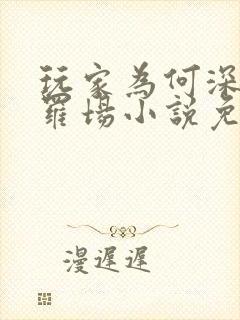 玩家為何深
羅場小說免
漫遲遲